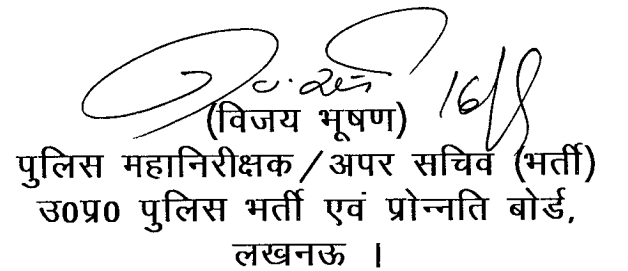 (विजय भूषण)
पुलिस महानिरीक्षक/अपर सचिव (भर्ती)
उ0प्र0 पुलिस भर्ती एवं प्रोन्नति बोर्ड,
लखनऊ ।